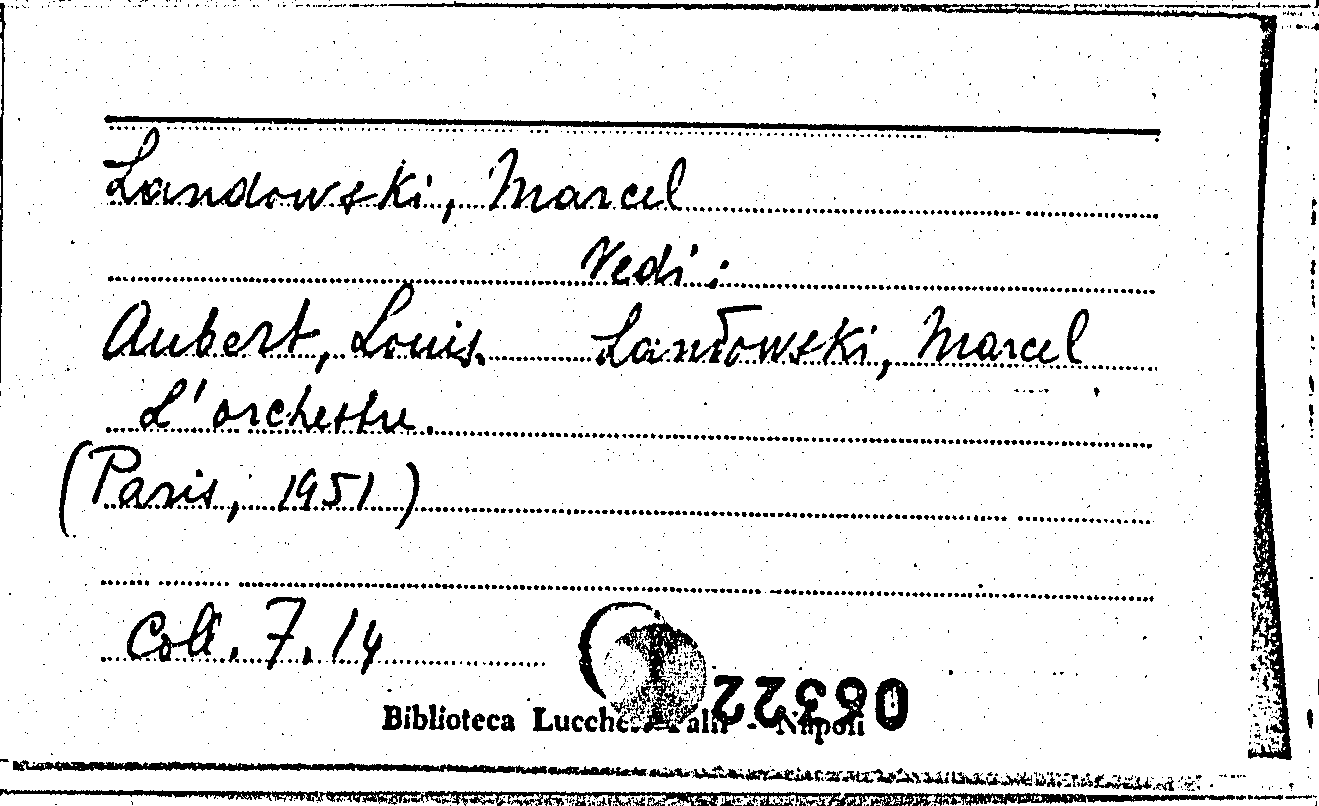 Landowski, Marcel
Vedi:
Aubert, Louis. Landowski, Marcel
L'orchestre.
(Paris, 1951)
Coll. 7.14
Biblioteca Lucchesi Palli - Napoli